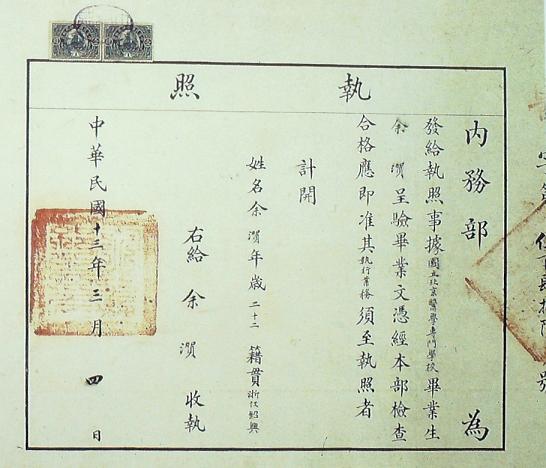 執照
內務部為
發給執照事據國立北京醫學專門學校畢業生
余㵑呈驗畢業文憑經本部檢查
合格應即准其執行業務須至執照者
計開
姓名余㵑年歲二十二籍貫浙江紹興
右給余㵑收執
中華民國十三年三月四日